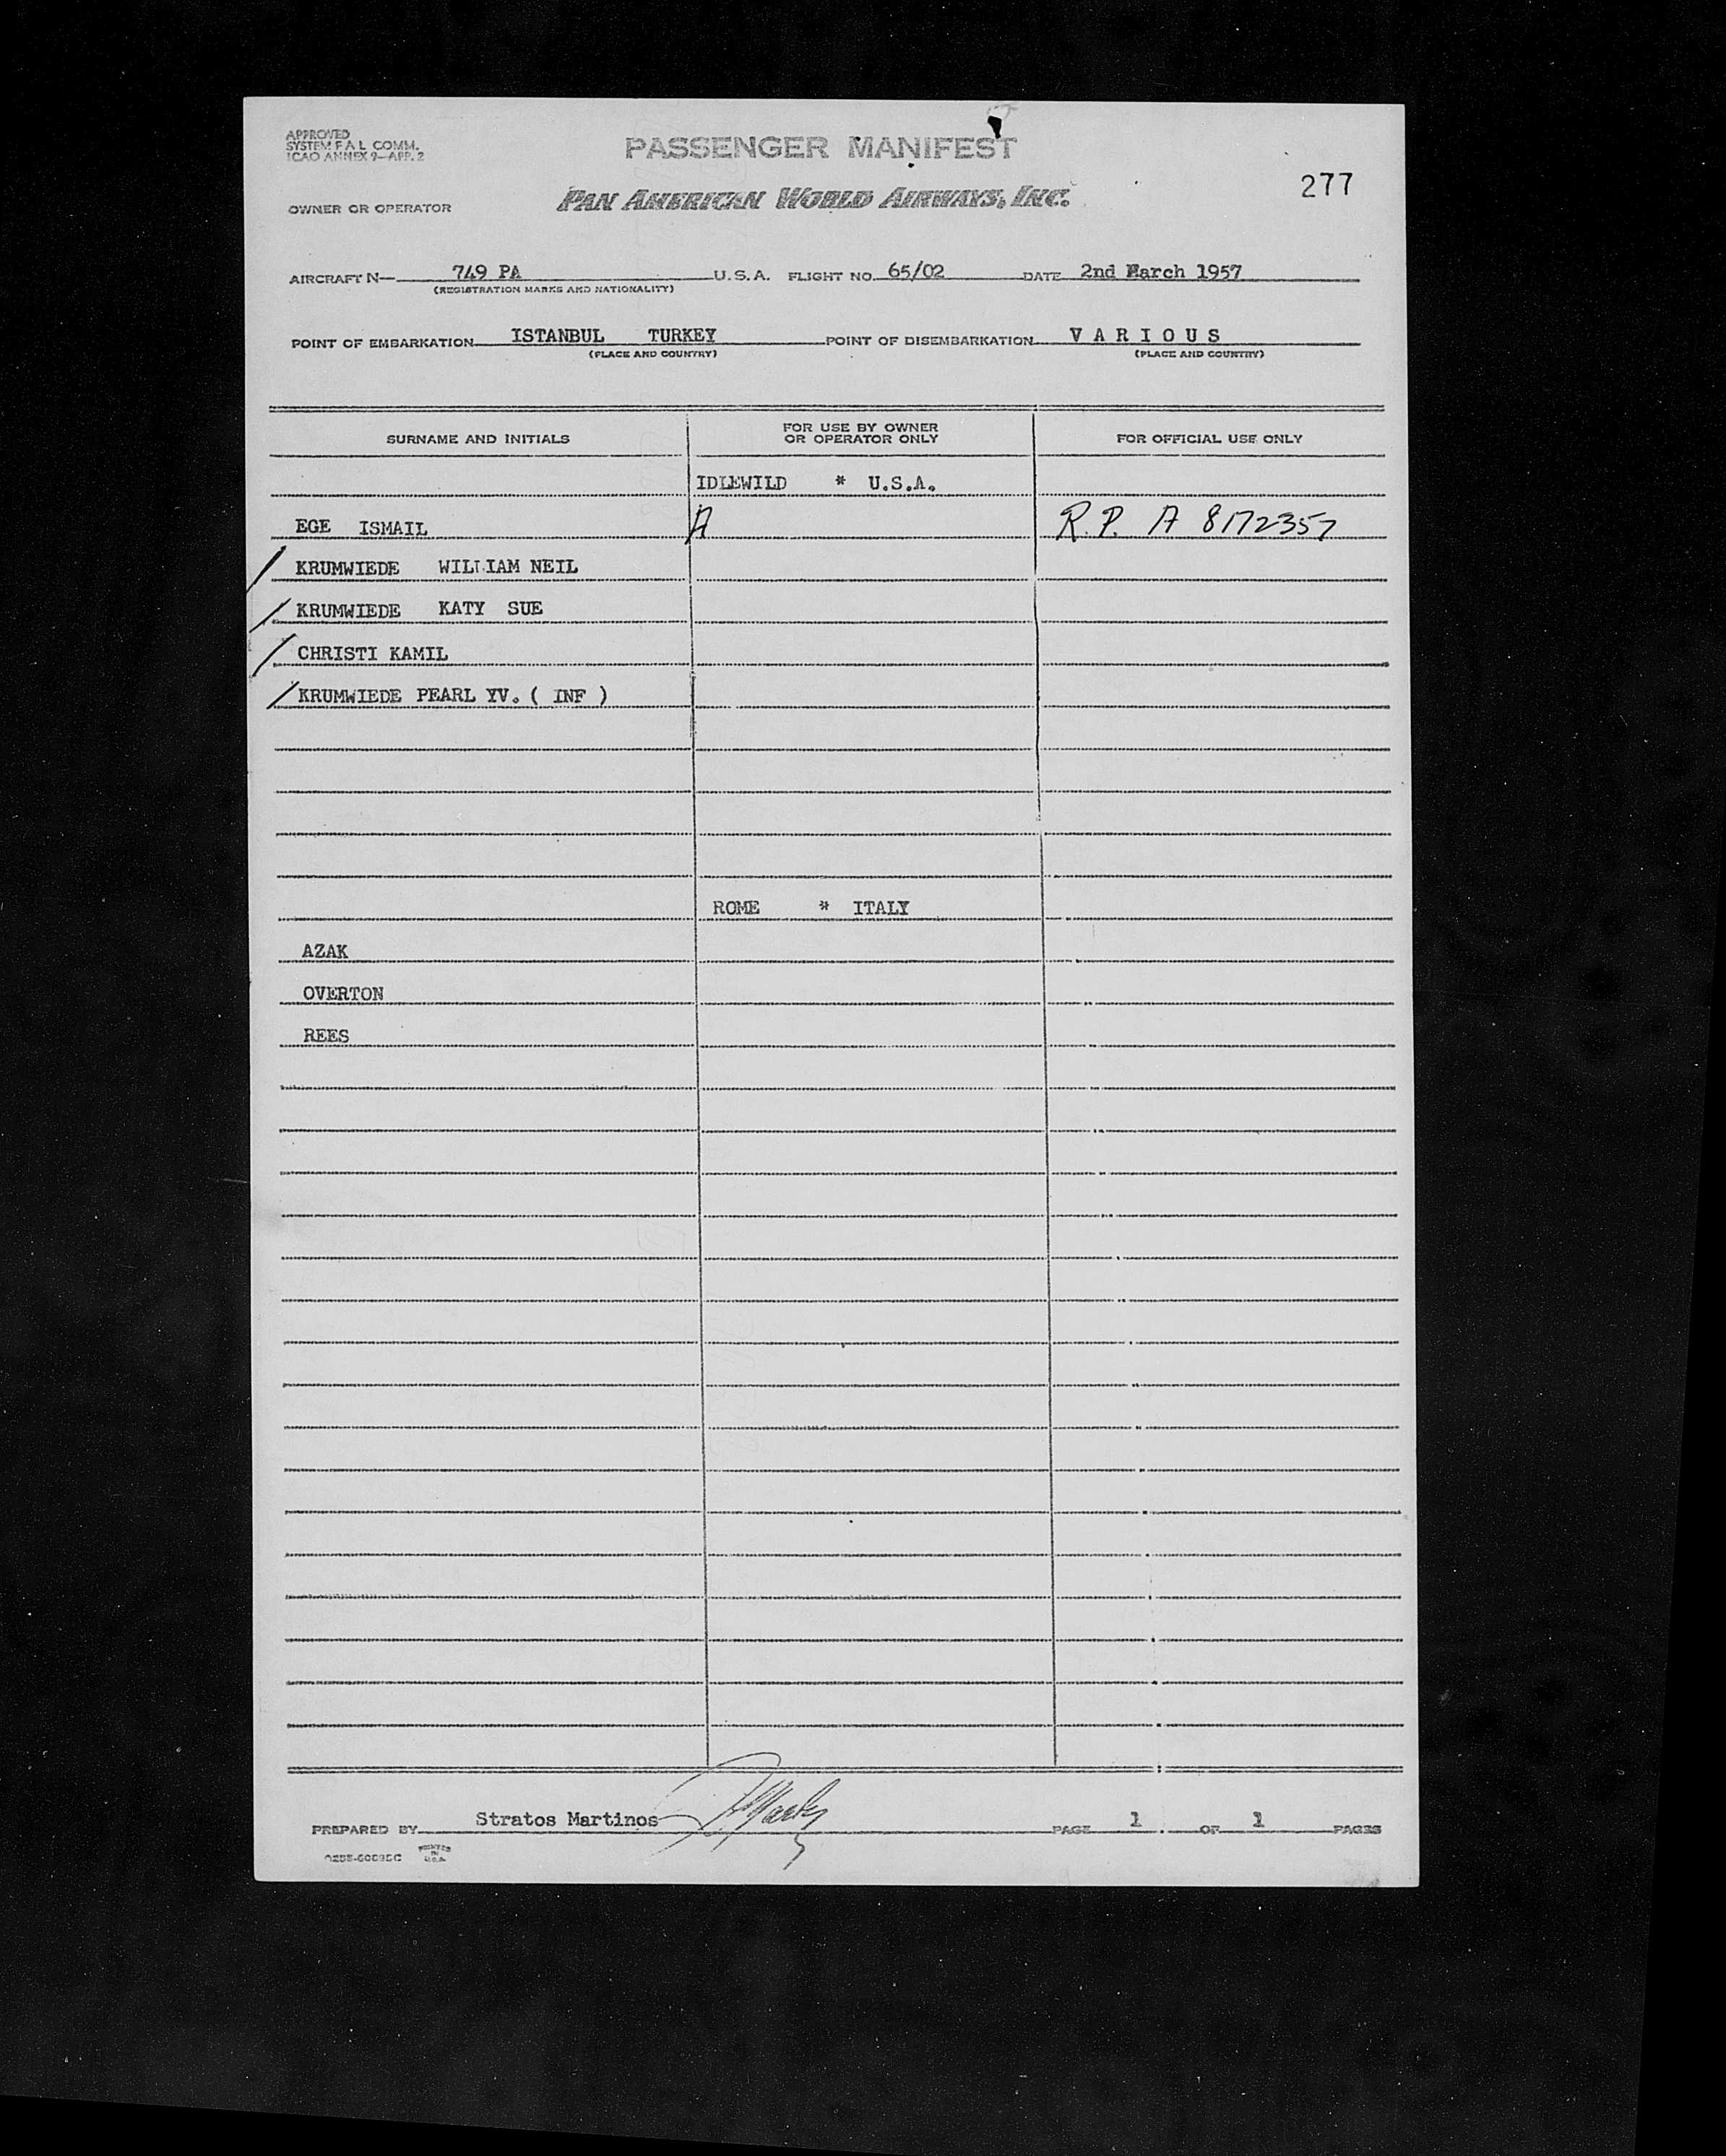 APPROVED
SYSTEM F A L COMM.
ICAO ANNEX 9—APP. 2
PASSENGER MANIFEST
277
OWNER OR OPERATOR PAN AMERICAN WORLD AIRWAYS, INC.
AIRCRAFT N— 749 PA U.S.A. FLIGHT NO. 65/02 DATE 2nd March 1957
(REGISTRATION MARKS AND NATIONALITY)
POINT OF EMBARKATION ISTANBUL TURKEY POINT OF DISEMBARKATION V A R I O U S
(PLACE AND COUNTRY) (PLACE AND COUNTRY)
SURNAME AND INITIALS FOR USE BY OWNER OR OPERATOR ONLY FOR OFFICIAL USE ONLY
IDLEWILD * U.S.A.
EGE ISMAIL A R.P. A 8172357
/ KRUMWIEDE WILLIAM NEIL
/ KRUMWIEDE KATY SUE
/ CHRISTI KAMIL
/ KRUMWIEDE PEARL YV. ( INF )
ROME * ITALY
AZAK
OVERTON
REES
PREPARED BY Stratos Martinos PAGE 1 OF 1 PAGES
PRINTED IN U.S.A.